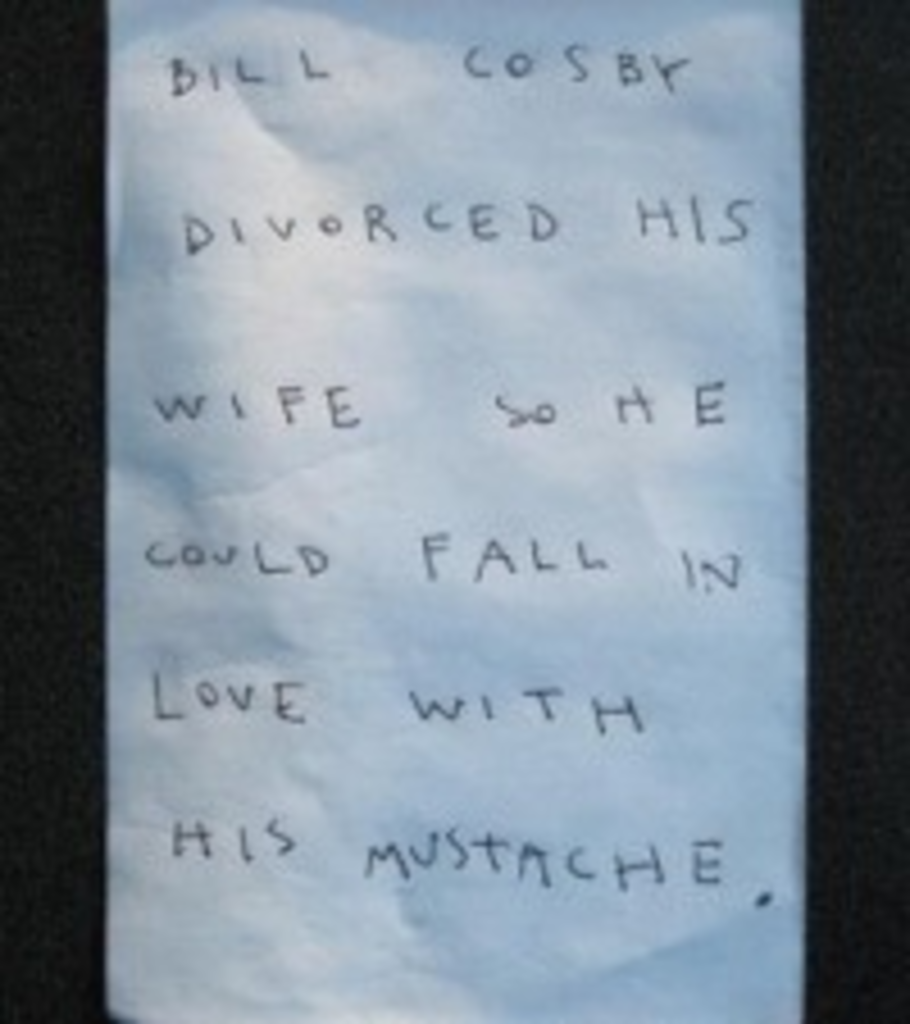 BILL COSBY
DIVORCED HIS
WIFE SO HE
COULD FALL IN
LOVE WITH
HIS MUSTACHE.